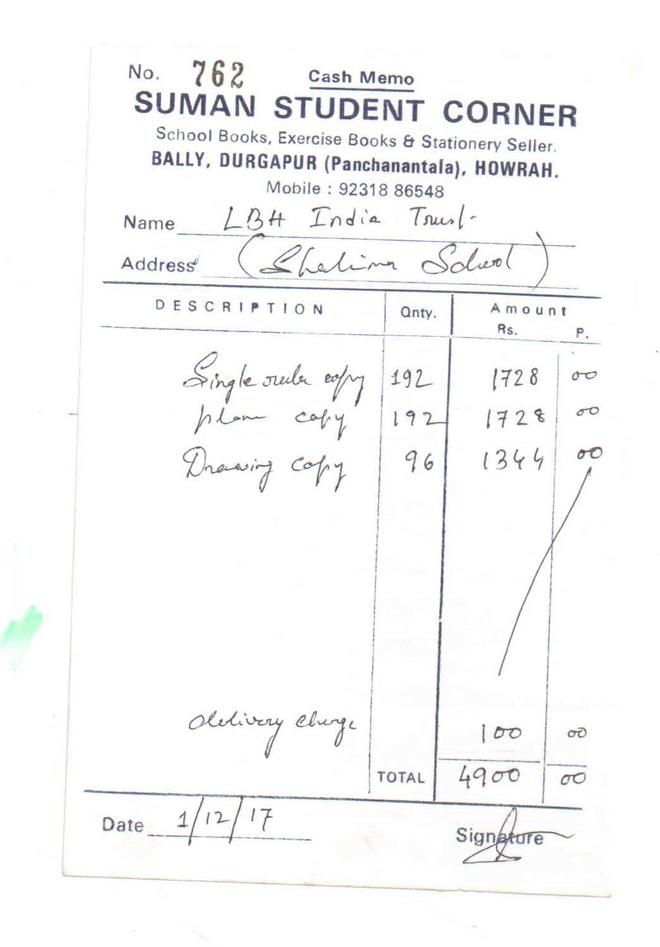 No. 762 Cash Memo
SUMAN STUDENT CORNER
School Books, Exercise Books & Stationery Seller.
BALLY, DURGAPUR (Panchanantala), HOWRAH.
Mobile : 92318 86548
Name LBH India Trust
Address (Shalimar School)
DESCRIPTION Qnty. Amount
Rs. P.
Single rule copy 192 1728 00
plain copy 192 1728 00
Drawing copy 96 1344 00
delivery charge 100 00
TOTAL 4900 00
Date 1/12/17
Signature